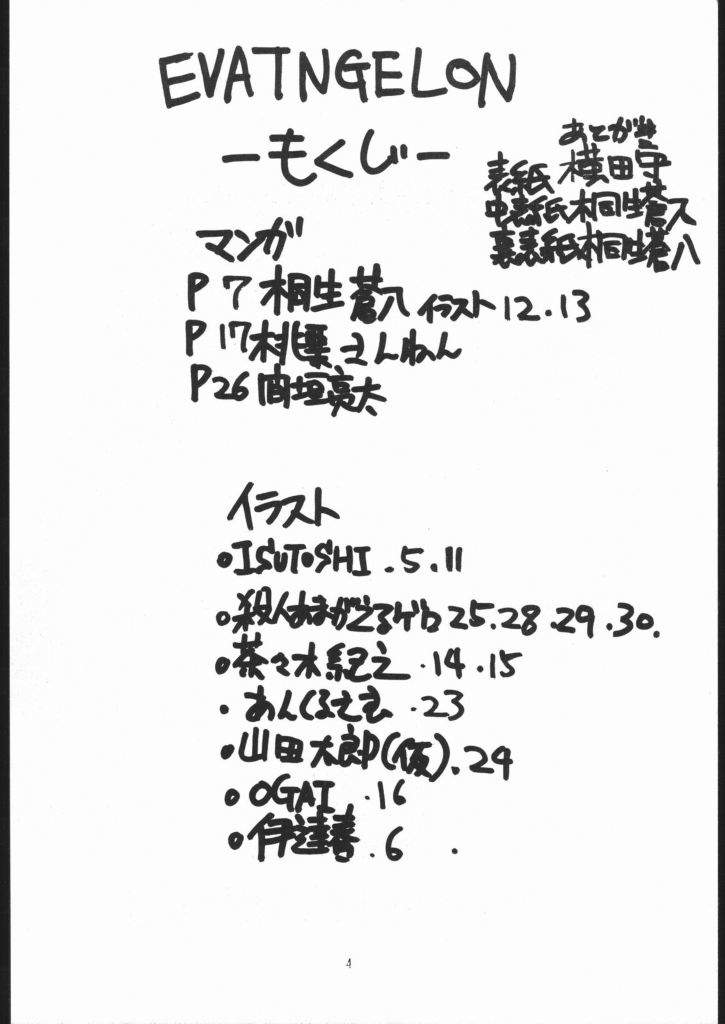 EVATNGELON
ーもくじー
あとがき
表紙 横田守
中表紙 桐生蒼八
裏表紙 桐生蒼八
マンガ
P 7 桐生蒼八 イラスト 12.13
P 17 桃栗さんねん
P26 間垣亮太
イラスト
・ISUTOSHI.5.11
・殺人あまがえるゲロ 25.28.29.30.
・茶々木紀之.14.15
・あんくるさむ.23
・山田太郎(仮).24
・OGAI .16
・伊達善.6
4